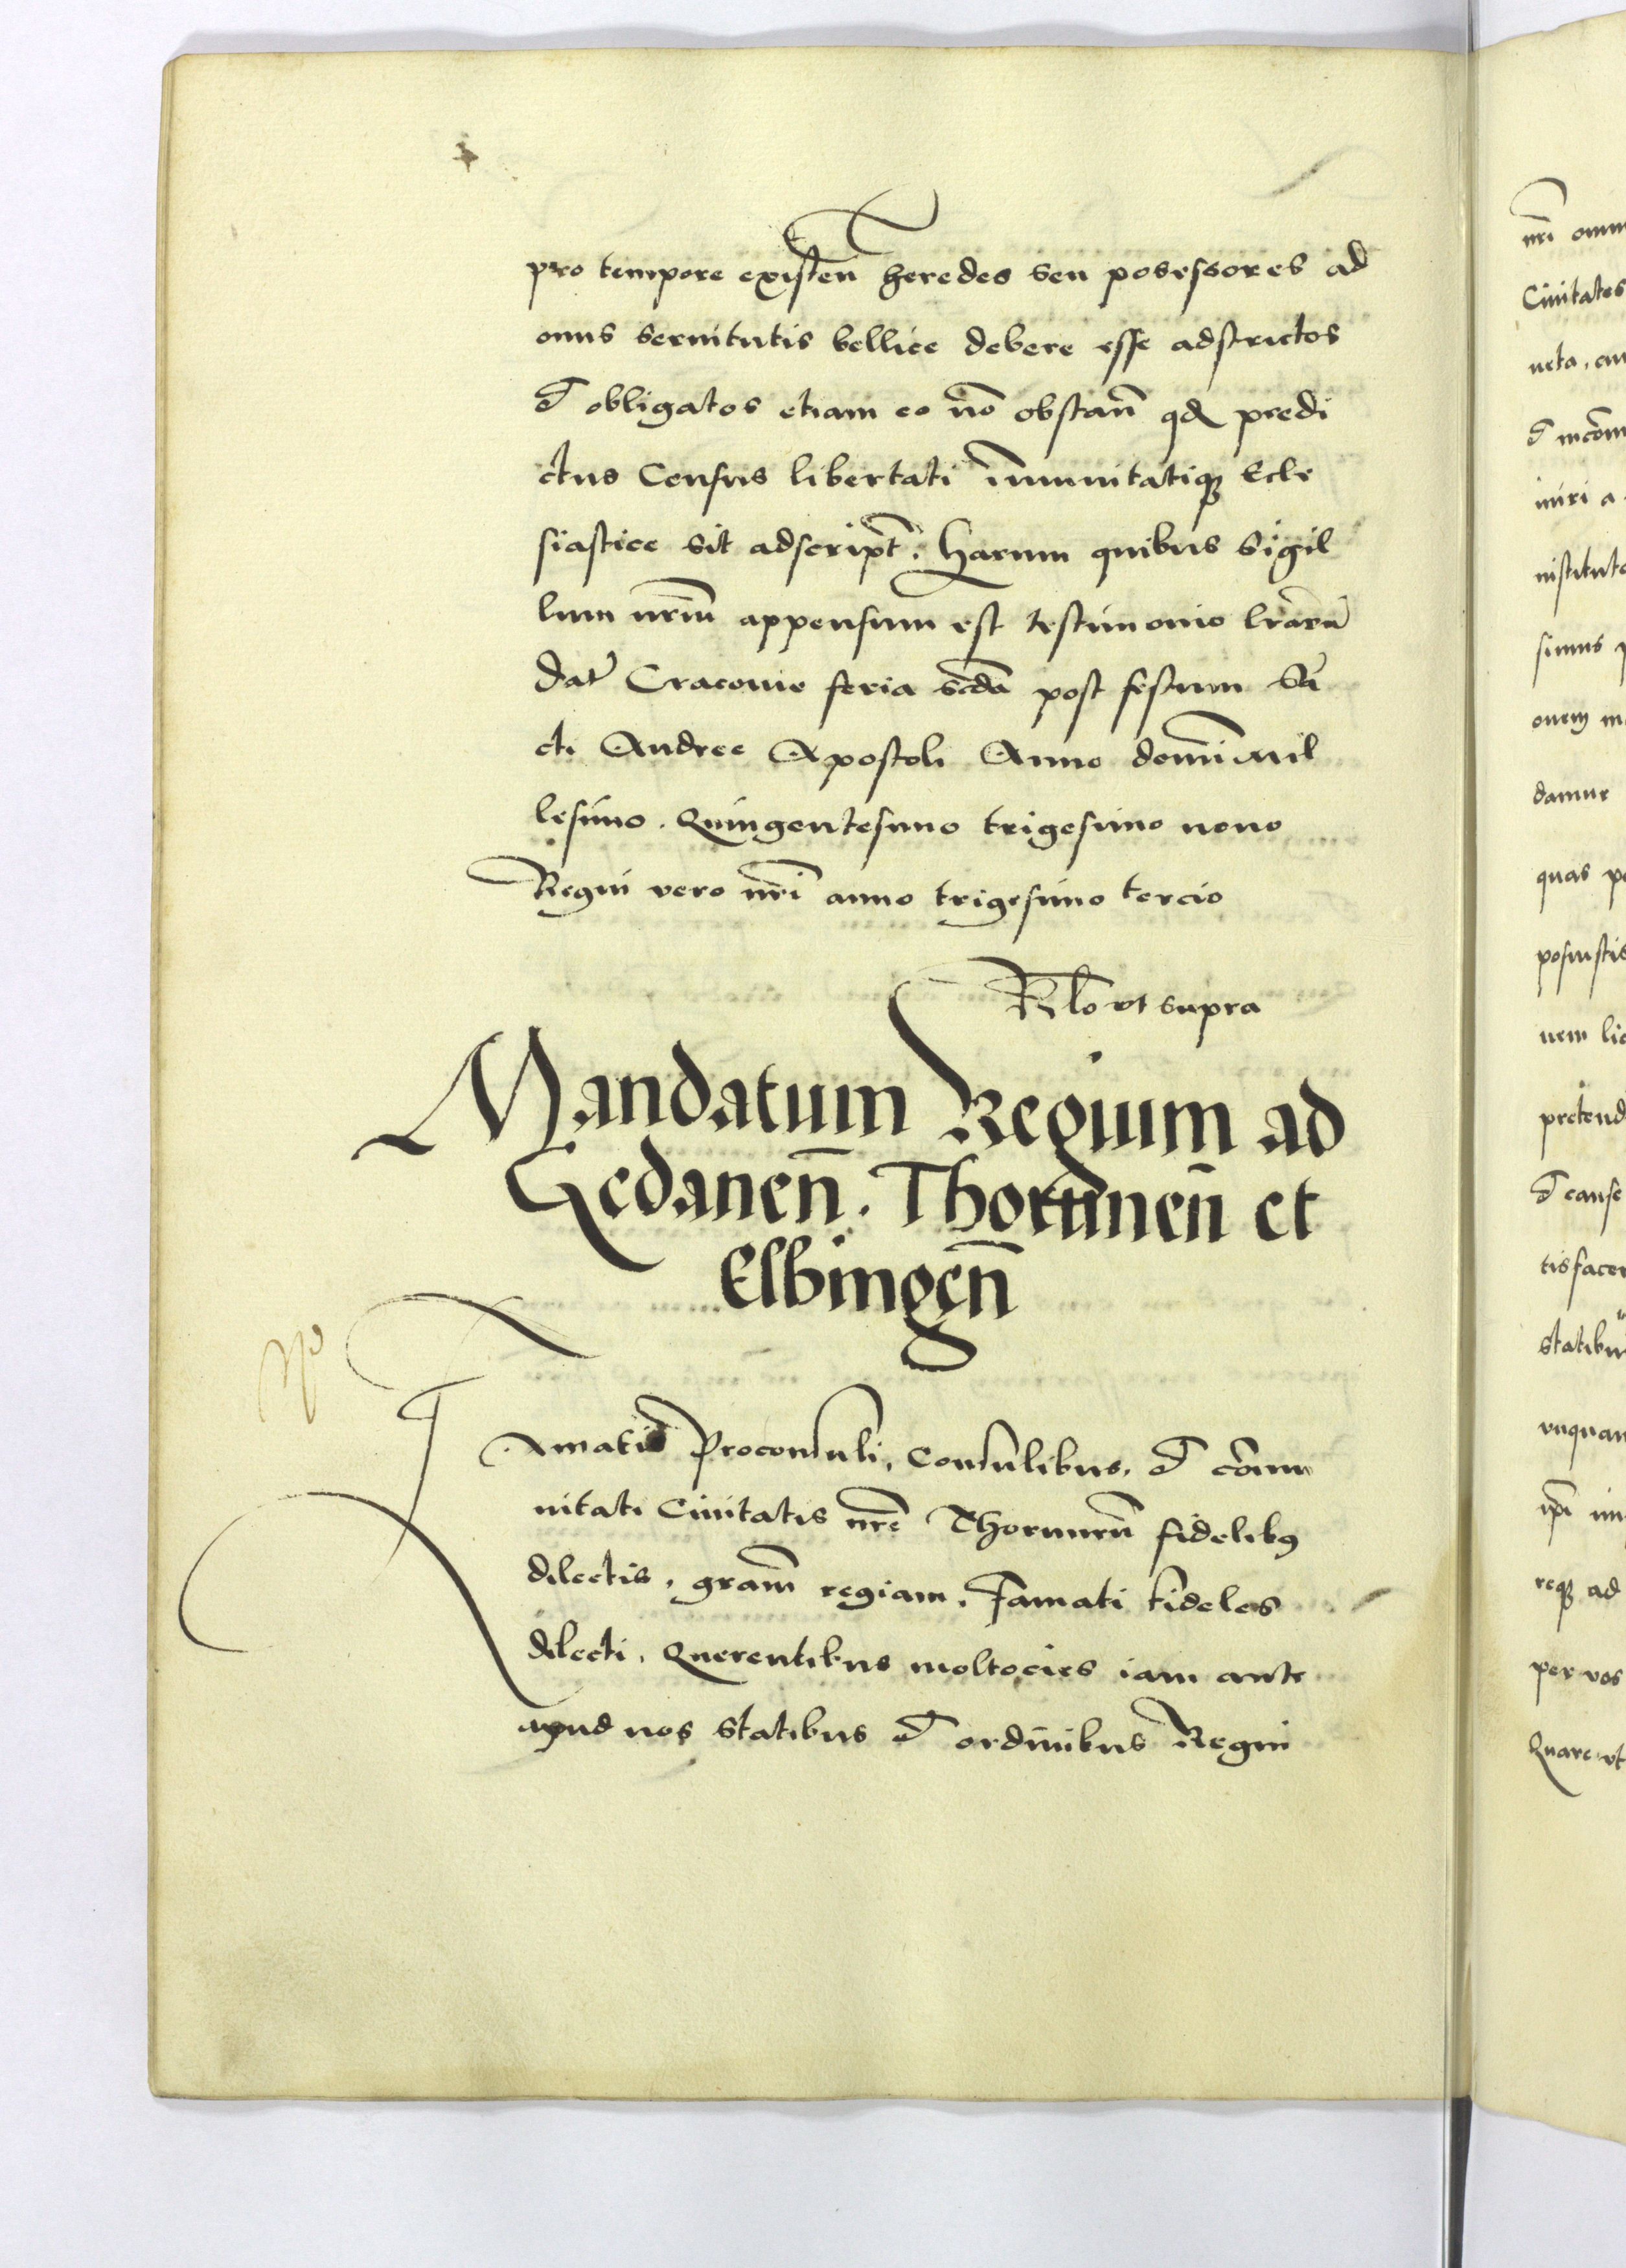 pro tempore existen̄ heredes seu posessores ad
onus seruitutis bellice debere esse adstrictos
et obligatos etiam eo nō obstan̄ qd predi
ctus Census libertati im̄unitatiqꝫ Ecle
siastice sit adscript̄. Harum quibus Sigil
lum nr̄m appensum est testimonio lr̄arū
Dat̄ Cracouie feria scd̄a post festum San̄
cti Andree Apostoli Anno domī Mil
lesimo. Quingentesimo trigesimo nono
Regni vero nr̄i anno trigesimo tercio
Rlō vt supra
Mandatum Regium ad
Gedanen̄. Thorunen̄ et
Elbingen̄
Famatis Proconsuli, Consulibus. et com̄u
nitati Ciuitatis nr̄e Thorunen̄ fidelibꝰ
dilectis, gram̄ regiam. Famati fideles
dilecti. Querentibus moltocies iam ante
apud nos Statibus et ordinibus Regni
nr̄i omni
Ciuitates
ueta, cu
et incom
iniri a
institut
simus p
onem m
damur
quas pe
posuistis
nem lic
pretend
et cause
tisfacer
Statibu
vnquam
ip̄i im
reqꝫ ad
per vos
Quare vt